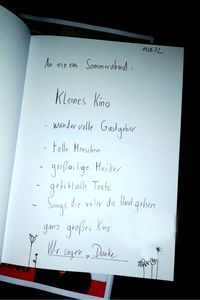 An einem Sommerabend:
Kleines Kino
- wundervolle Gastgeber
- tolle Menschen
- großartige Musiker
- gefühlvolle Texte
- Songs die unter die Haut gehen
ganz großes Kino
Wir sagen "Danke